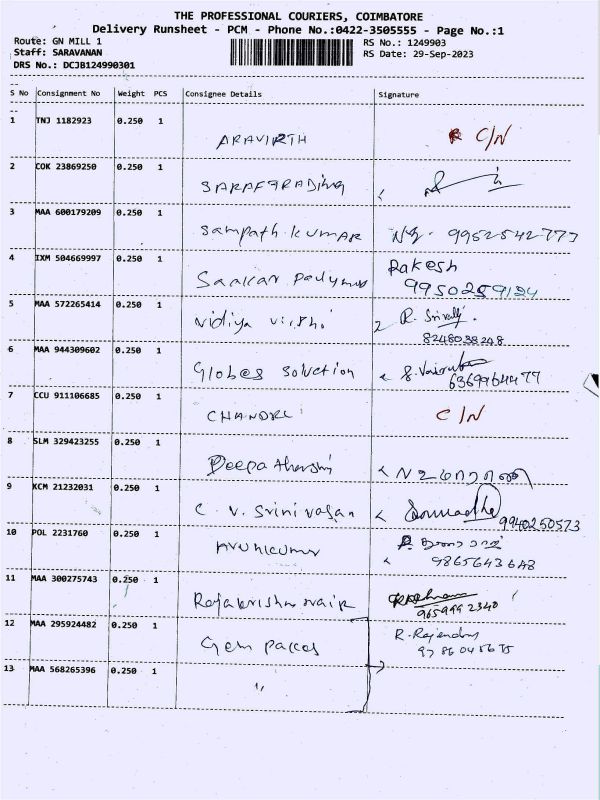 THE PROFESSIONAL COURIERS, COIMBATORE
Delivery Runsheet - PCM - Phone No.:0422-3505555 - Page No.:1
Route: GN MILL 1 RS No.: 1249903
Staff: SARAVANAN RS Date: 29-Sep-2023
DRS No.: DCJB124990301
S No Consignment No Weight PCS Consignee Details Signature
1 TNJ 1182923 0.250 1
ARAVIRTH C/N
2 COK 23869250 0.250 1
3 MAA 600179209 0.250 1
Sampath.KUMAR 9952542773
4 IXM 504669997 0.250 1 Rakesh
9950259124
5 MAA 572265414 0.250 1
Vidiya R. Srivalli
8248038248
6 MAA 944309602 0.250 1
Globes Solution
6369964477
7 CCU 911106685 0.250 1
C/N
8 SLM 329423255 0.250 1
Deepa
9 KCM 21232031 0.250 1
C. V. Srinivasan 9940250573
10 POL 2231760 0.250 1
Arunkumar
9865643648
11 MAA 300275743 0.250 1
9659992340
12 MAA 295924482 0.250 1
Gem R. Rajendra
13 MAA 568265396 0.250 1
"